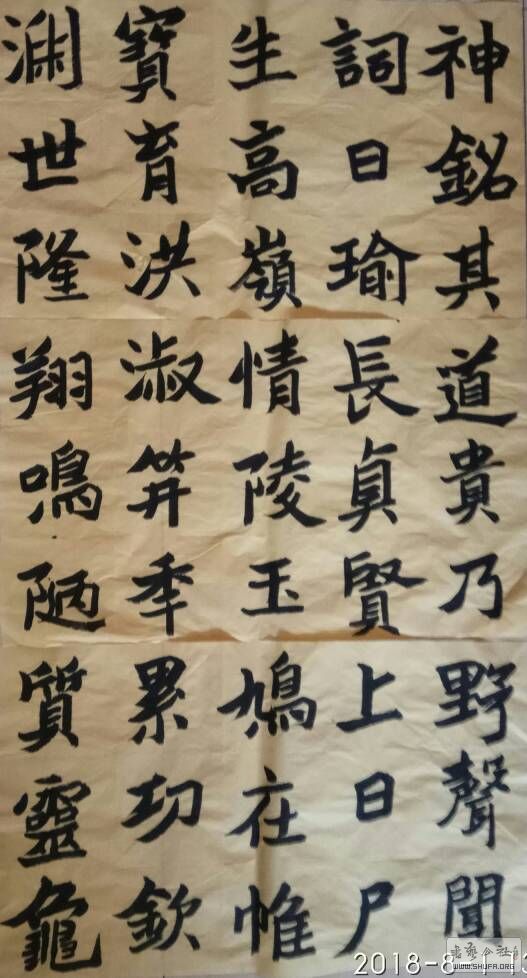 神銘其道貴乃野聲聞
詞日瑜長貞賢上日尸
生高嶺情陵玉鳩在帷
寶育洪淑笄季累功欽
渊世隆翔鳴陋質靈龜
WWW.SHUFA.ORG